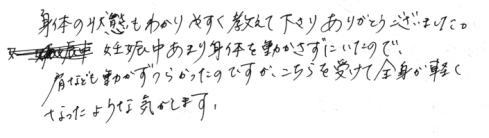 身体の状態もわかりやすく教えて下さりありがとうございました。
妊娠中あまり身体を動かさずにいたので、
肩なども動かずつらかったのですが、こちらを受けて全身が軽く
なったような気がします。